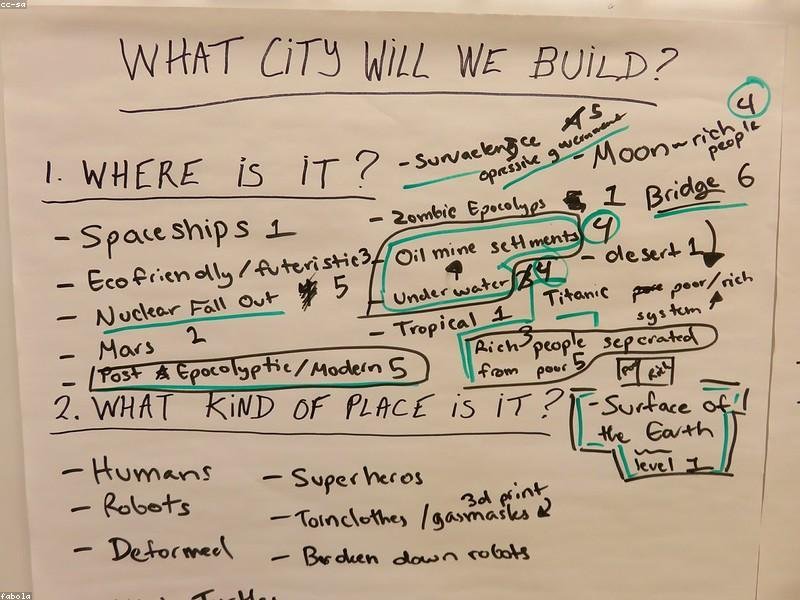 cc-sa
WHAT CiTY WiLL WE BUiLD?
1. WHERE iS iT?
- Spaceships 1
- Ecofriendly/futeristic 3
- Nuclear Fall Out 5
- Mars 2
- Post Epocolyptic/Modern 5
- Survaelence 5
opressive government
- Moon - rich people 4
- Zombie Epocolyps 1
Oil mine setlments 4
Underwater 4
- Tropical 1
Bridge 6
- desert 1
Titanic
poor/rich
system
Rich 3 people seperated
from poor 5
- Surface of 1
the Earth
level 1
2. WHAT KiND OF PLACE iS iT?
- Humans
- Robots
- Deformed
- Superheros
3d print
- Tornclothes/gasmasks
- Broken down robots
fabola